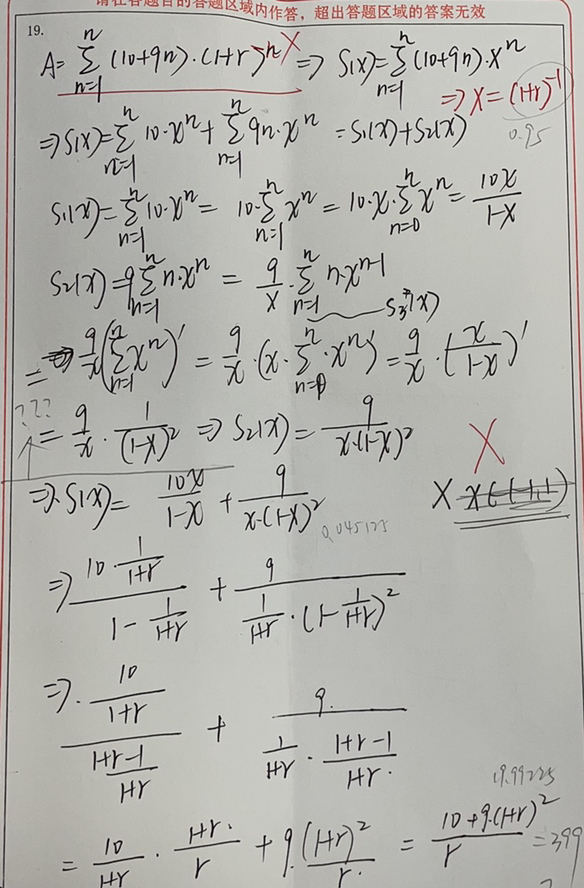 请在各题目的答题区域内作答，超出答题区域的答案无效
19.
A=∑_{n=1}^{n}(10+9n)·(1+r)^{-n} X ⇒ S(x)=∑_{n=1}^{n}(10+9n)·x^n
⇒X=(1+r)^{-1}
0.95
⇒S(x)=∑_{n=1}^{n}10·x^n+∑_{n=1}^{n}9n·x^n=S1(x)+S2(x)
S1(x)=∑_{n=1}^{n}10·x^n=10·∑_{n=1}^{n}x^n=10·x·∑_{n=0}^{n}x^n=\frac{10x}{1-x}
S2(x)=9∑_{n=1}^{n}n·x^n=\frac{9}{x}·∑_{n=1}^{n}n·x^{n-1}
S3(x)
=\frac{9}{x}(∑_{n=1}^{n}x^n)'=\frac{9}{x}·(x·∑_{n=0}^{n}·x^n)'=\frac{9}{x}·(\frac{x}{1-x})'
???
=\frac{9}{x}·\frac{1}{(1-x)^2}⇒S2(x)=\frac{9}{x·(1-x)^2}
X
⇒S(x)=\frac{10x}{1-x}+\frac{9}{x·(1-x)^2}
X
0.045125
⇒\frac{10·\frac{1}{1+r}}{1-\frac{1}{1+r}}+\frac{9}{\frac{1}{1+r}·(1-\frac{1}{1+r})^2}
⇒·\frac{\frac{10}{1+r}}{\frac{1+r-1}{1+r}}+\frac{9.}{\frac{1}{1+r}·\frac{1+r-1}{1+r.}}
19.99225
=\frac{10}{1+r}·\frac{1+r.}{r}+9.\frac{(1+r)^2}{r.}=\frac{10+9.(1+r)^2}{r}=399